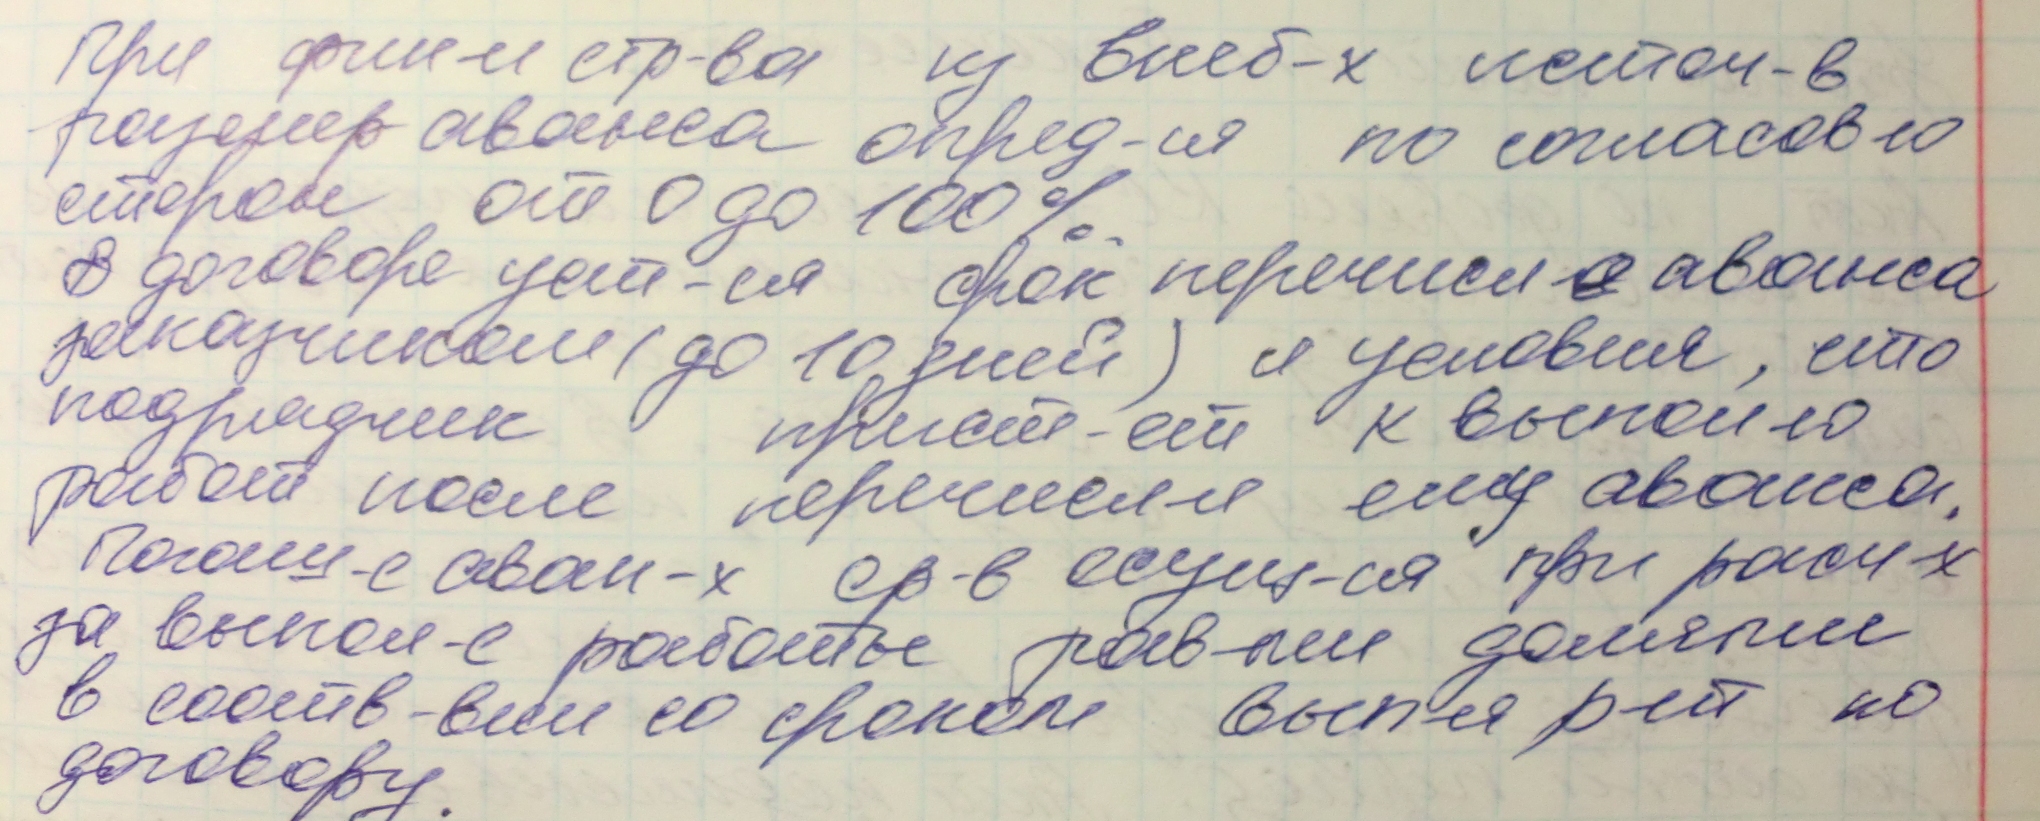 При фин-и стр-ва из внеб-х источ-в
размер аванса опред-ся по согласов-ю
сторон от 0 до 100%.
В договоре уст-ся срок перечисл-е аванса
заказчиком (до 10 дней) и условия, что
подрядчик прист-ет к выпол-ю
работ после перечисл-я ему аванса.
Погаш-е аван-х ср-в осущ-ся при расч-х
за выпол-е работы рав-ми долями
в соотв-вии со сроком вып-я р-т по
договору.